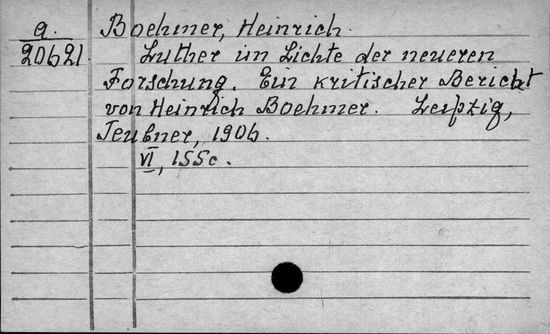 a. Boehmer, Heinrich.
20621 Luther im Lichte der neueren
Forschung. Ein kritischer Bericht
von Heinrich Boehmer. Leipzig,
Teubner, 1906.
VI, 155 c.